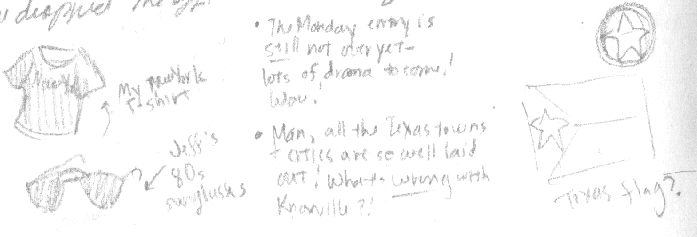 dropped the
New York
My New York
T-shirt
Jeff's
80s
sunglasses
• The Monday entry is
still not over yet–
lots of drama to come!
Wow!
• Man, all the Texas towns
+ cities are so well laid
out! What's wrong with
Knoxville?!
Texas flag?